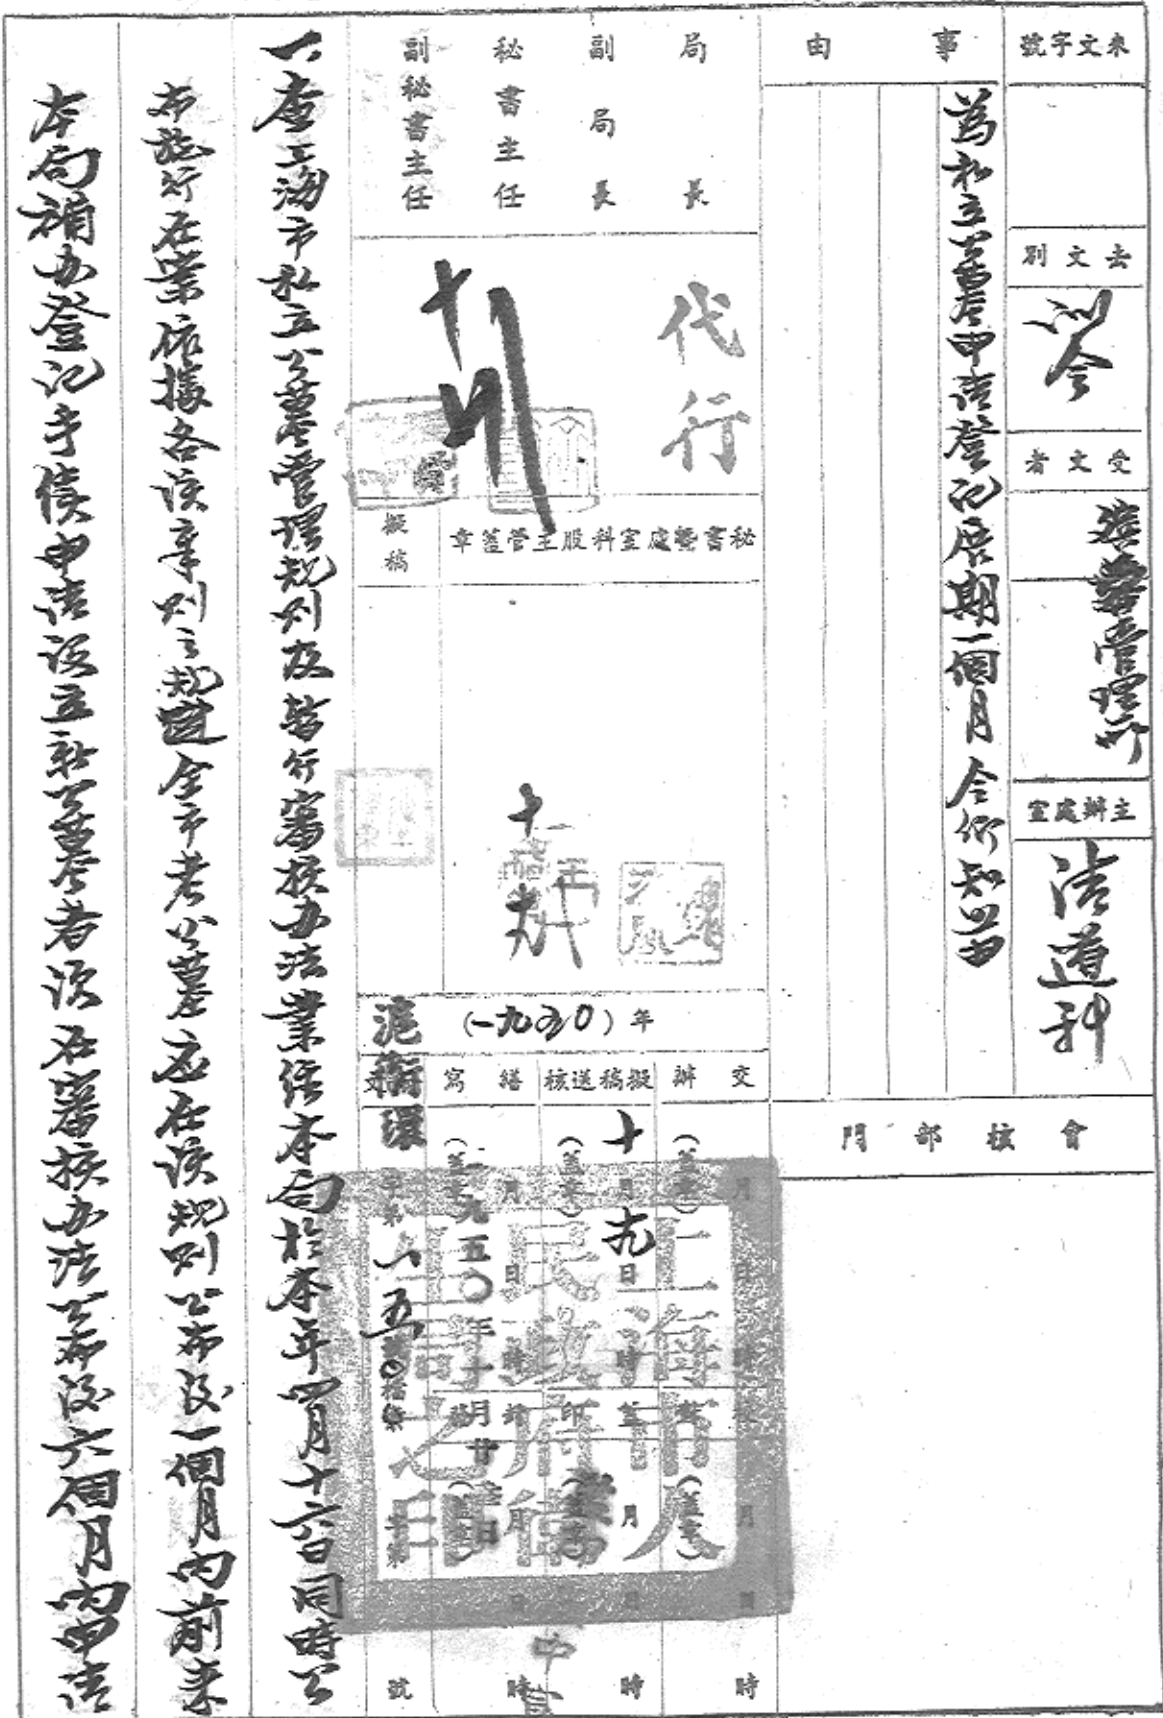 來文字號
去文別
訓令
受文者
殯葬管理所
主辦處室
清道科
事由
為私立公墓申請登记展期一個月令仰知照由
會核部門
局長
副局長
秘書主任
副秘書主任
代行
秘書暨處室科股主管蓋章
擬稿
(一九五0)年
交辦
擬稿送核
繕寫
十月九日
一九五〇年十月廿
滬衛環
字第一五
號
一、查上海市私立公墓管理規則及暫行審核办法業經本局於本年四月十六日同時公
布施行在案依據各該章則之規定全市老公墓应在該規則公布後一個月内前来
本局補办登记手續申請設立新公墓者須在審核办法公布後六個月内申請